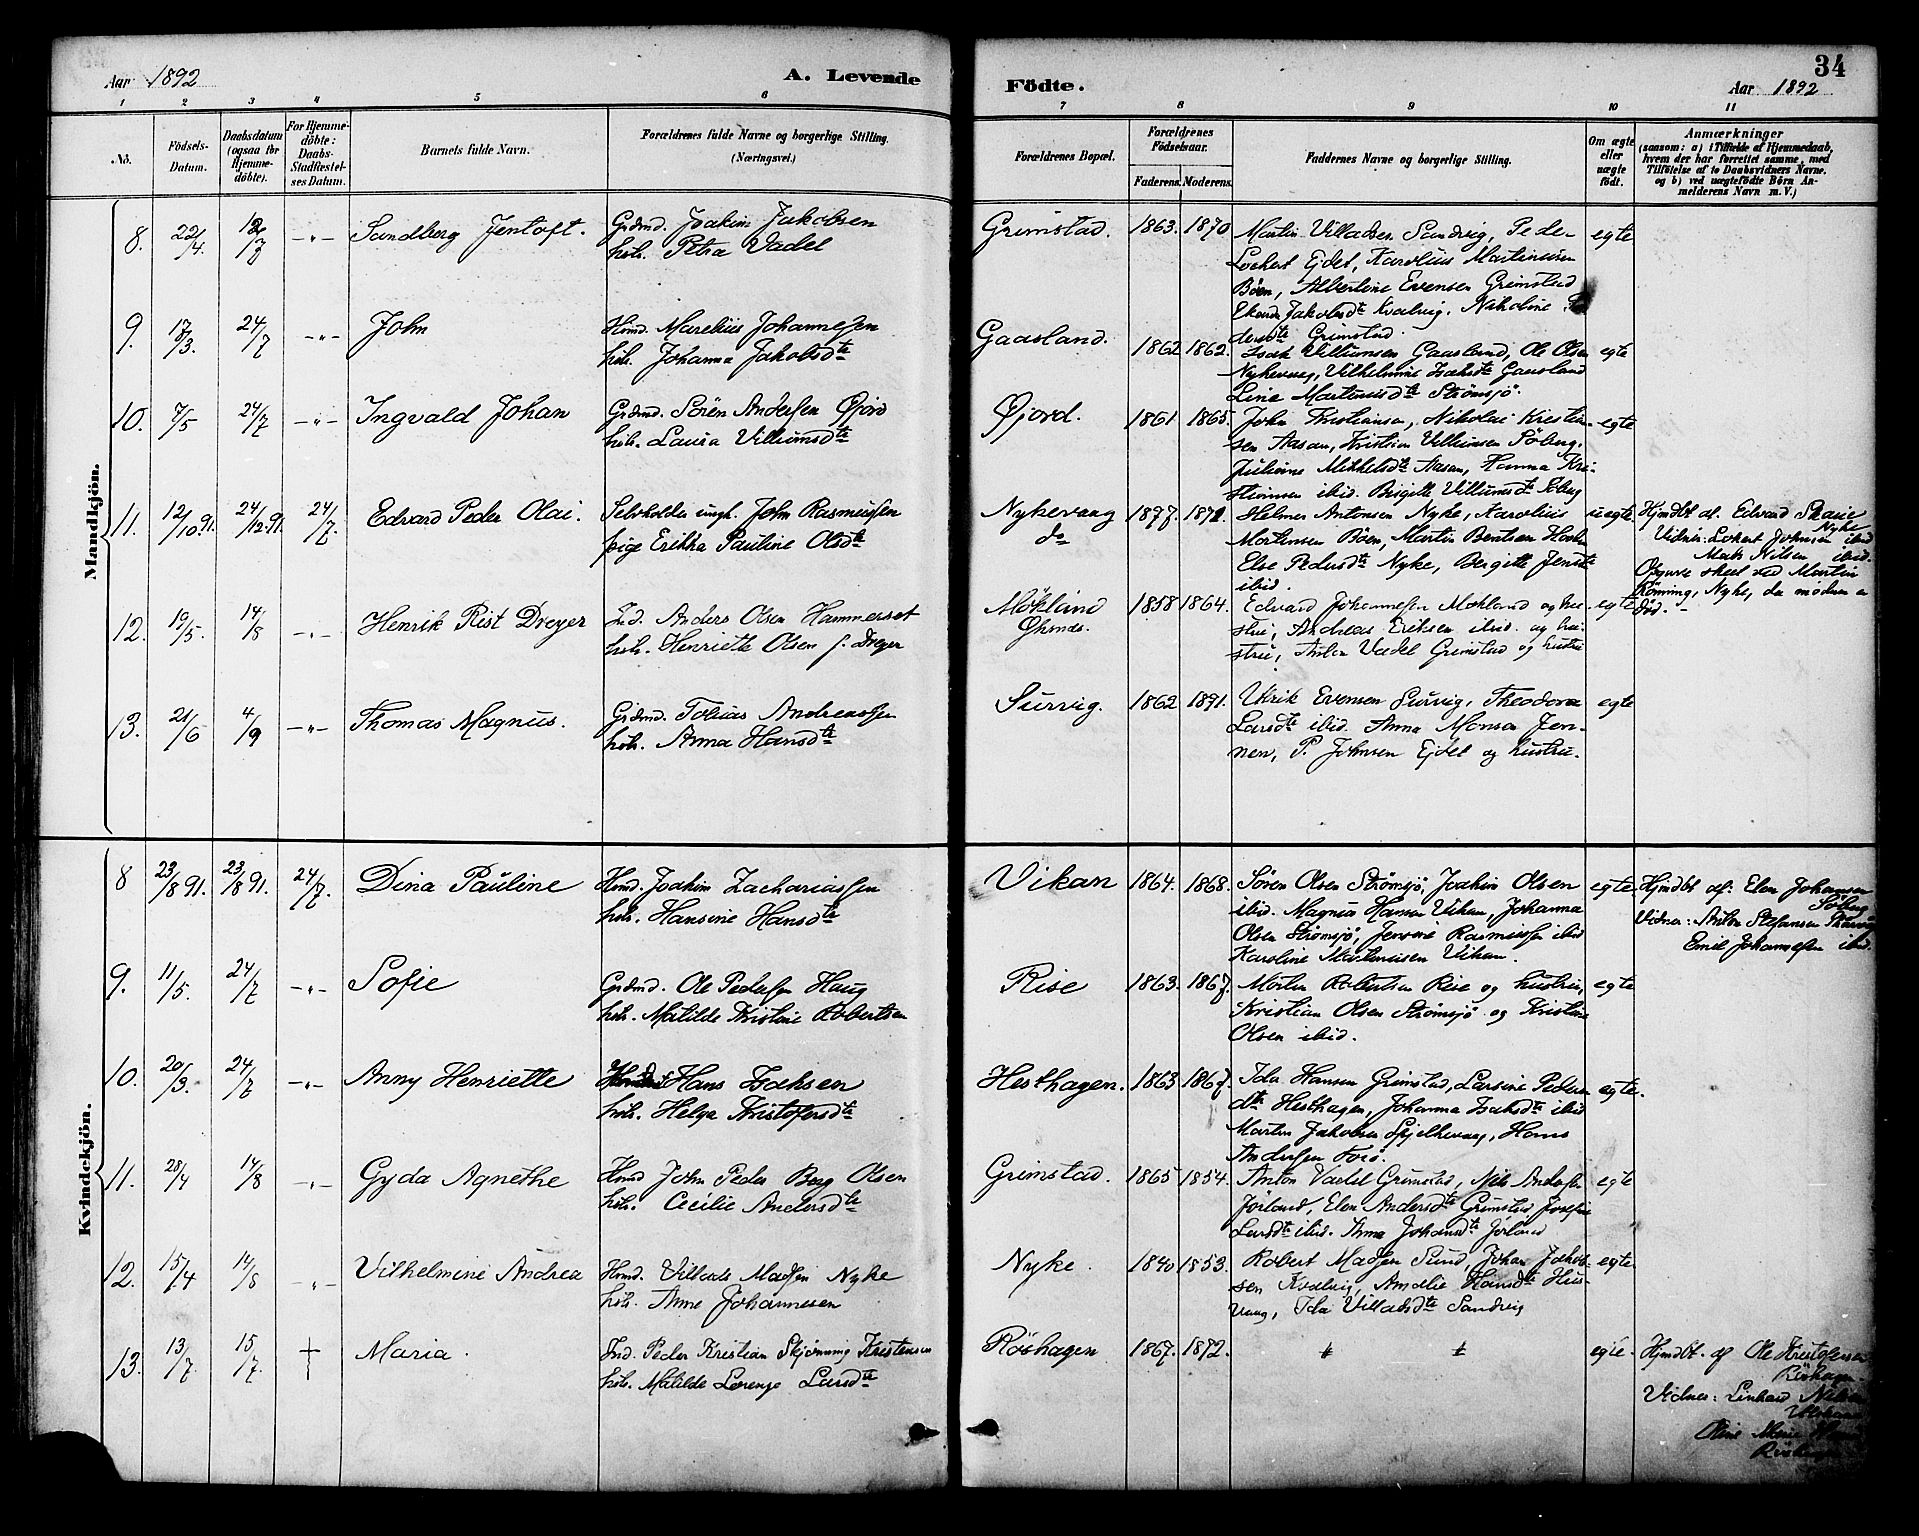 Aar 1892
A. Levende
Födte.
34
Aar 1892
1 2 3 4 5 6 7 8 9 10 11
No.
Födsels-
Datum.
Daabsdatum
(ogsaa for
Hjemme-
döbte).
For Hjemme-
döbte:
Daabs-
Stadfæstel-
ses Datum.
Barnets fulde Navn.
Forældrenes fulde Navne og borgerlige Stilling.
(Næringsvei.)
Forældrenes Bopæl.
Forældrenes
Födselsaar.
Faderens. Moderens.
Faddernes Navne og borgerlige Stilling.
Om ægte
eller
uægte
födt.
Anmærkninger
(saasom: a) i Tilfælde af Hjemmedaab,
hvem der har forrettet samme, med
Tilföielse af to Daabsvidners Navne,
og b) ved uægtefödte Börn An-
melderens Navn m. V.)
Mandkjön.
8. 22/4. Sandberg Jentoft. Grdmd. Joakim Jakobsen
hstr. Petra Vadel
Grimstad. 1863. 1870 Martin Villadsen Sandvig, Peder egte
Lockert Ejdet, Karolius Martinusen
Böen, Albertine Evensen Grimstad
Jakobsdt Kvalvig. Nikoline
Grimstad.
9. 17/3. 24/7 -"- John Hmd. Marelius Johannesen
hstr. Johanna Jakobsdt
Gaasland. 1862 1862. Isak Villumsen Gaasland, Ole Olsen egte
Nykevaag, Vilhelmine Isaksdt Gaasland
Line Martinusdt Strömsjö.
10. 7/5 24/7 -"- Ingvald Johan Grdmd. Sören Andersen Öjord
hstr. Laura Villumsdt
Öjord. 1861 1865. John Kristiansen, Nikolai Kristian- egte
sen Aasan, Kristian Villumsen Söberg.
Juliane Mikkelsdt Aasan, Hanna Kri-
stiansen ibid. Birgitte Villumsdt Söberg
11. 12/10 91. 24/12 91. 24/7. Edvard Peder Olai. Selvholder ungk. John Rasmussen
pige Erikka Pauline Olsdt
Nykevaag 1877. Helmer Antonsen Nyke, Karolius uegte.
do Martinsen Böen, Martin Bentsen
Else Pedersdt Nyke, Bergitte Jensdt
ibid.
Hjmdbt af. Edvard
Nyke
Vidner: Lokert Johnsen ibid
Mads Nilsen ibid.
Opgave skeet ved Martin
Rönning, Nyke, da modren er
död. -
12. 19/5. 14/8 -"- Henrik Rist Dreyer Ind. Anders Olsen Hammerset
hstr. Henriette Olsen f. Dreyer
Möklind 1858 1864. Edvard Johannesen Mokland og hu- egte
strue, Andreas Eriksen ibid. og hu-
strue, Anton Vadel Grimstad og hustru
13. 21/6 4/9 -"- Thomas Magnus. Grdmd. Tobias Andreassen
hstr. Anna Hansdt
Survig. 1862 1891. Ulrik Evensen Survig, Theodora egte
Larsdt ibid. Anna Monsa Jen-
nen, P. Johnsen Ejdet og hustru.
Kvindekjön.
8 23/8 91. 23/8 91. 24/7. Dina Pauline Hmd. Joakim Zachariassen
hstr. Hansine Hansdt
Vikan 1864. 1868. Sören Olsen Strömsjö, Joakim Olsen egte.
ibid. Magnus Hansen Vikan, Johanna
Olsen Strömsjö, Jensine Rasmussen ibid
Karoline Martinusen Vikan.
Hjmdbt af: Elen Johansen
Söberg
Vidner: Anton Stefansen
Emil Johannesen ibid.
9. 11/5. 24/7 -"- Sofie Grdmd. Ole Pedersen Haug
hstr. Matilde Kristine Robertsen
Rise 1863. 1867. Martin Robertsen Rise og hustru, egte
Kristian Olsen Strömsjö og Kristine
Olsen ibid.
10. 20/3. 24/7 -"- Anny Henriette Hans Isaksen
hstr. Helga Kristofersdt
Hesthagen. 1863 1867. Ida Hansen Grimstad, Larsine Peders egte.
dt Hesthagen, Johanna Isaksdt ibid
Martin Jakobsen Spjelkevaag, Hans
Andersen
11. 28/4 14/8 -"- Gyda Agnethe Hmd John Peder Berg Olsen
hstr. Cecilie Andersdt
Grimstad. 1865 1854. Anton Vadel Grimstad, Nils Anders egte
Jörland, Elen Andersdt Grimstad Josefine
Larsdt ibid. Anna Johansdt Jörland
12. 15/4 14/8 -"- Vilhelmine Andrea Hmd. Villads Madsen Nyke
hstr. Anne Johannesen
Nyke. 1840 1853. Robert Madsen Sund, Johan Jakob- egte
sen Kvalvig, Amalie Hansdt Hus-
vaag, Ida Villadsdt Sandvig
13. 13/7 15/7. † Maria. Ind. Peder Kristian Skjönning Kristensen
hstr. Matilde Lorense Larsdt
Röshagen 1867. 1872. egte.
Hjmdbt. af Ole Kristofersen
Röshagen.
Vidner: Linhard
Oline Marie